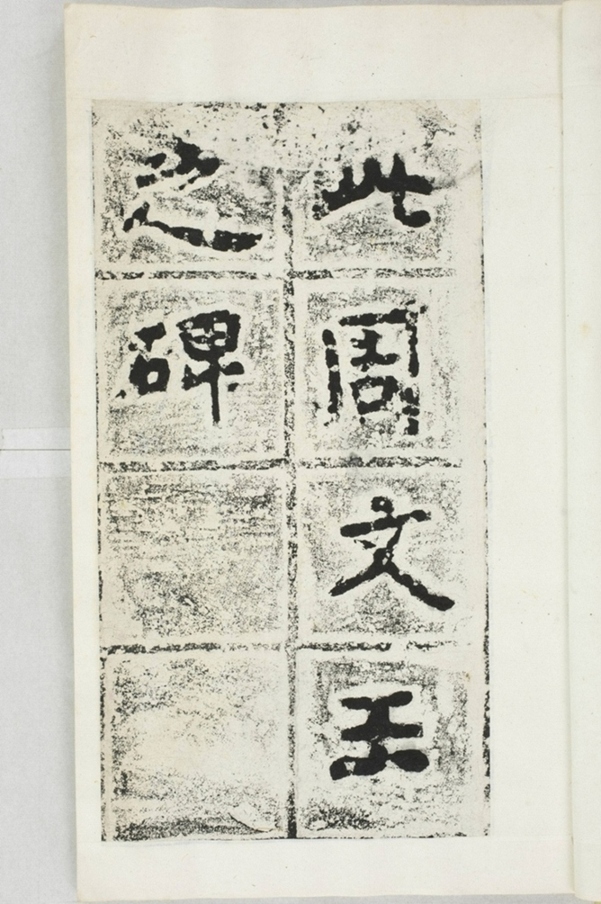 此周文王
之碑